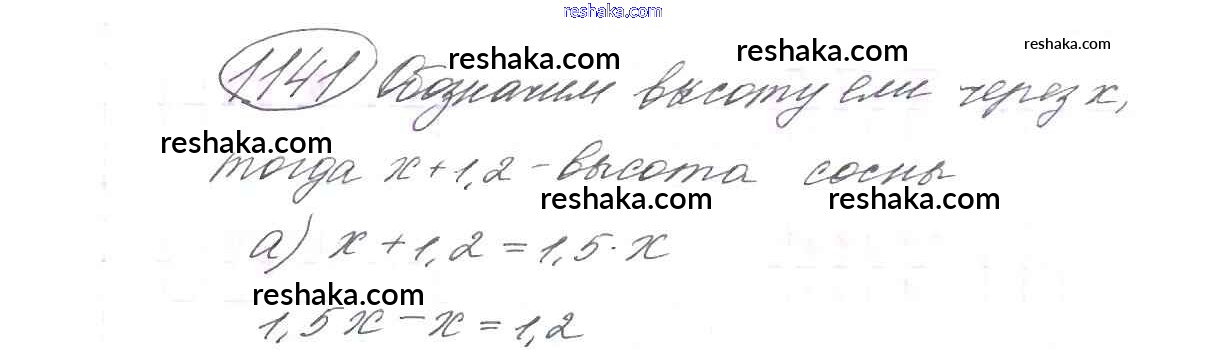 reshaka.com
reshaka.com reshaka.com reshaka.com
1141 Обозначим высоту ели через x,
reshaka.com
тогда x+1,2 - высота сосны
reshaka.com reshaka.com
а) x+1,2=1,5·x
reshaka.com
1,5x-x=1,2